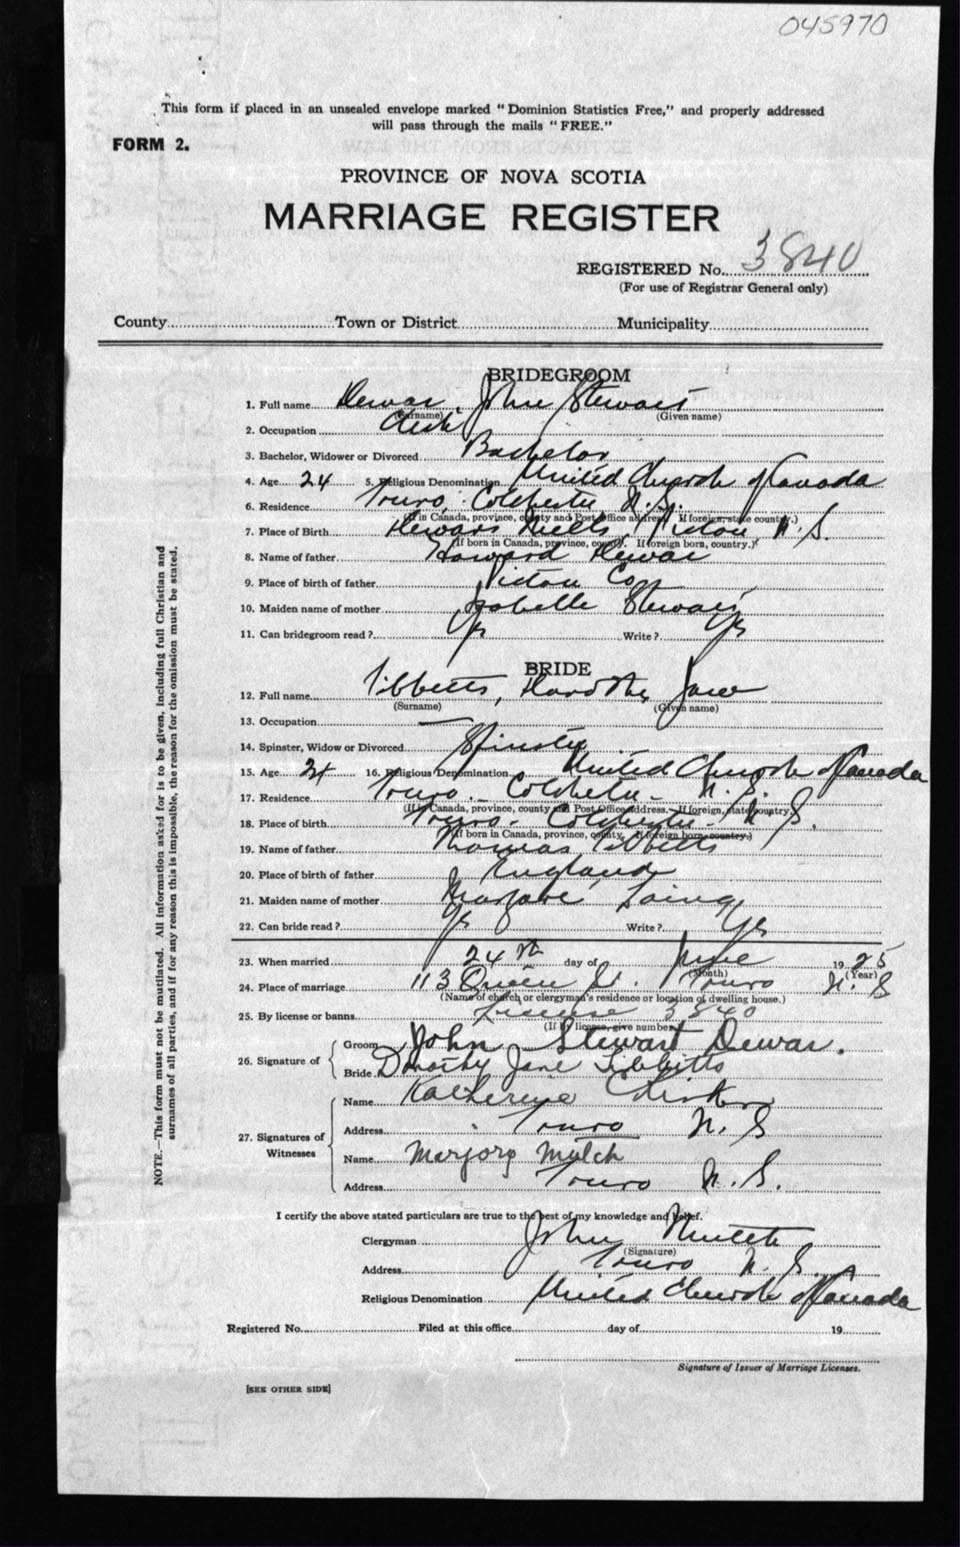 045970
This form if placed in an unsealed envelope marked "Dominion Statistics Free," and properly addressed
will pass through the mails "FREE."
FORM 2.
PROVINCE OF NOVA SCOTIA
MARRIAGE REGISTER
REGISTERED No. 3840
(For use of Registrar General only)
County Town or District Municipality
BRIDEGROOM
1. Full name Dewar, John Stewart
(Surname) (Given name)
2. Occupation Clerk
3. Bachelor, Widower or Divorced Bachelor
4. Age 24 5. Religious Denomination United Church of Canada
6. Residence Truro, Colchester N.S.
(If in Canada, province, county and Post Office address. If foreign, state country.)
7. Place of Birth Dewars Pictou N.S.
(If born in Canada, province, county. If foreign born, country.)
8. Name of father Howard Dewar
9. Place of birth of father Pictou Co
10. Maiden name of mother Isabelle Stewart
11. Can bridegroom read? Yes Write? Yes
BRIDE
12. Full name Tibbetts, Dorothy Jane
(Surname) (Given name)
13. Occupation —
14. Spinster, Widow or Divorced Spinster
15. Age 24 16. Religious Denomination United Church of Canada
17. Residence Truro - Colchester - N.S.
(If in Canada, province, county and Post Office address. If foreign, state country.)
18. Place of birth Truro - Colchester - N.S.
(If born in Canada, province, county. If foreign born, country.)
19. Name of father Thomas Tibbetts
20. Place of birth of father England
21. Maiden name of mother Margaret Laing
22. Can bride read? Yes Write? Yes
23. When married 24th day of June 1925
(Month) (Year)
24. Place of marriage 113 Queen St. Truro N.S
(Name of church or clergyman's residence or location of dwelling house.)
25. By license or banns License 3840
(If by license, give number)
26. Signature of Groom John Stewart Dewar.
Bride Dorothy Jane Tibbitts
27. Signatures of Witnesses
Name Katherine
Address Truro N.S
Name Marjory Mutch
Address Truro N.S.
I certify the above stated particulars are true to the best of my knowledge and belief.
Clergyman John
(Signature)
Address Truro N.S.
Religious Denomination United Church of Canada
Registered No. Filed at this office day of 19
Signature of Issuer of Marriage Licenses.
[SEE OTHER SIDE]
NOTE.—This form must not be mutilated. All information asked for is to be given, including full Christian and
surnames of all parties, and if for any reason this is impossible, the reason for the omission must be stated.